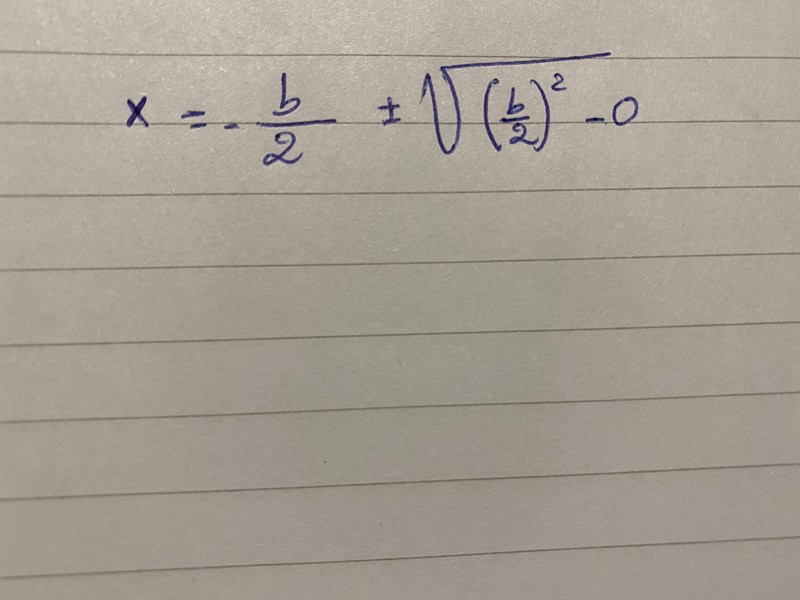 x = - b/2 ± √((b/2)² - 0